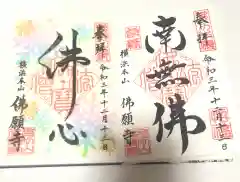 奉拝
南無佛
令和三年十一月十一日
横浜本山
佛願寺
奉拝
佛心
令和三年十二月十二日
横浜本山
佛願寺